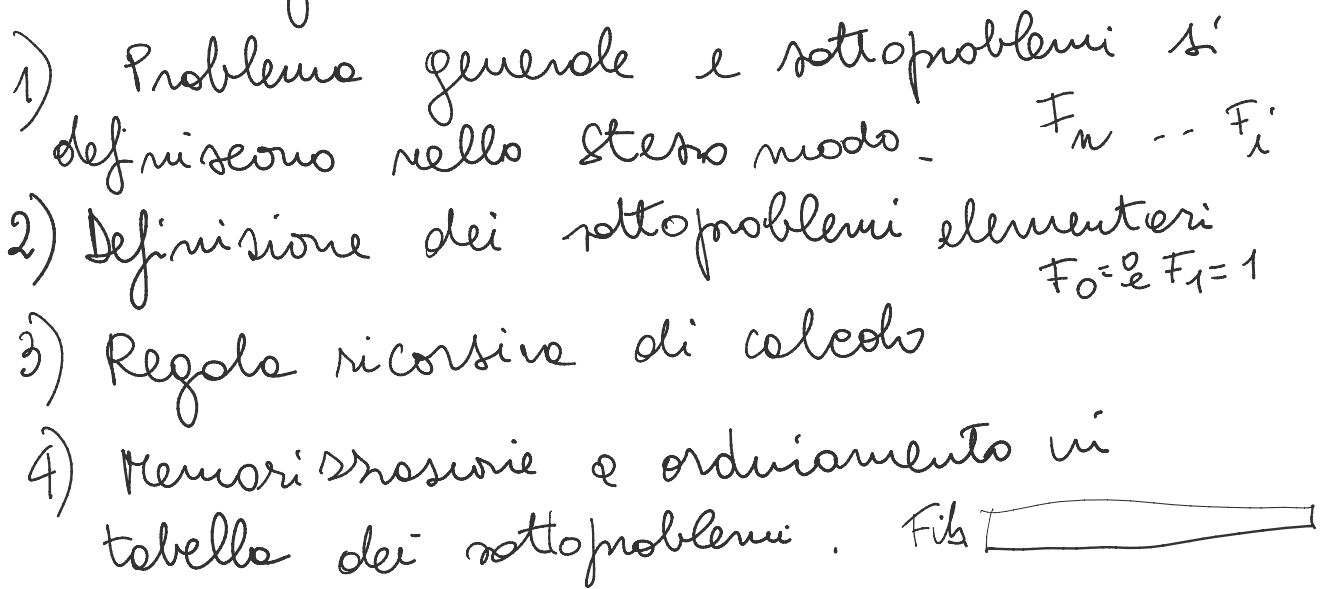 1) Problema generale e sottoproblemi si
definiscono nello stesso modo. Fn .. Fi
2) Definizione dei sottoproblemi elementari
F0=0 e F1=1
3) Regola ricorsiva di calcolo
4) Memorizzazione e ordinamento in
tabella dei sottoproblemi. Fib